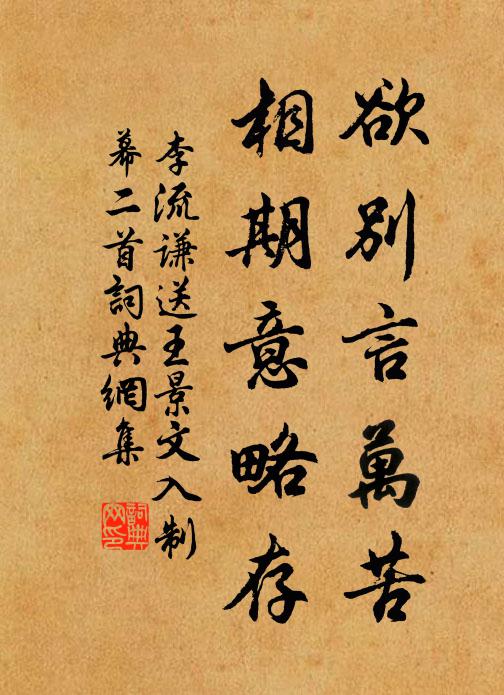 欲別言萬苦
相期意略存
李流謙送王景文入制
幕二首詞典網集
詞典
网印